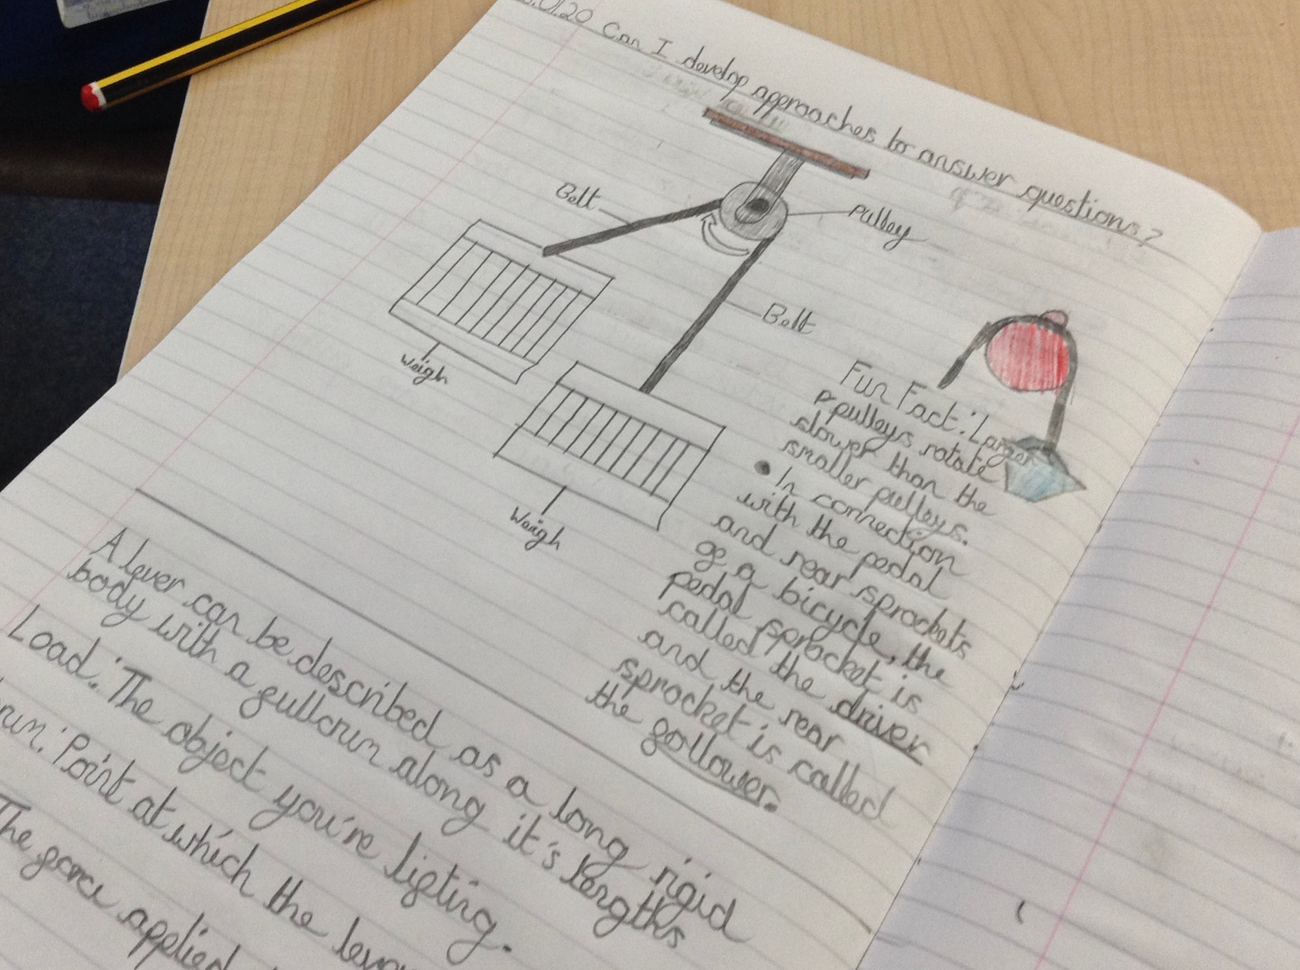 .01.20 Can I develop approaches to answer questions?
Belt
Pulley
Belt
Weigh
Weigh
Fun Fact: Larger
pulleys rotate
slower than the
smaller pulleys.
• In connection
with the pedal
and rear sprockets
of a bicycle, the
pedal sprocket is
called the driver
and the rear
sprocket is called
the follower.
A lever can be described as a long rigid
body with a fullcrum along it's lengths
Load: The object you're lifting.
rum: Point at which the lever
The force applied